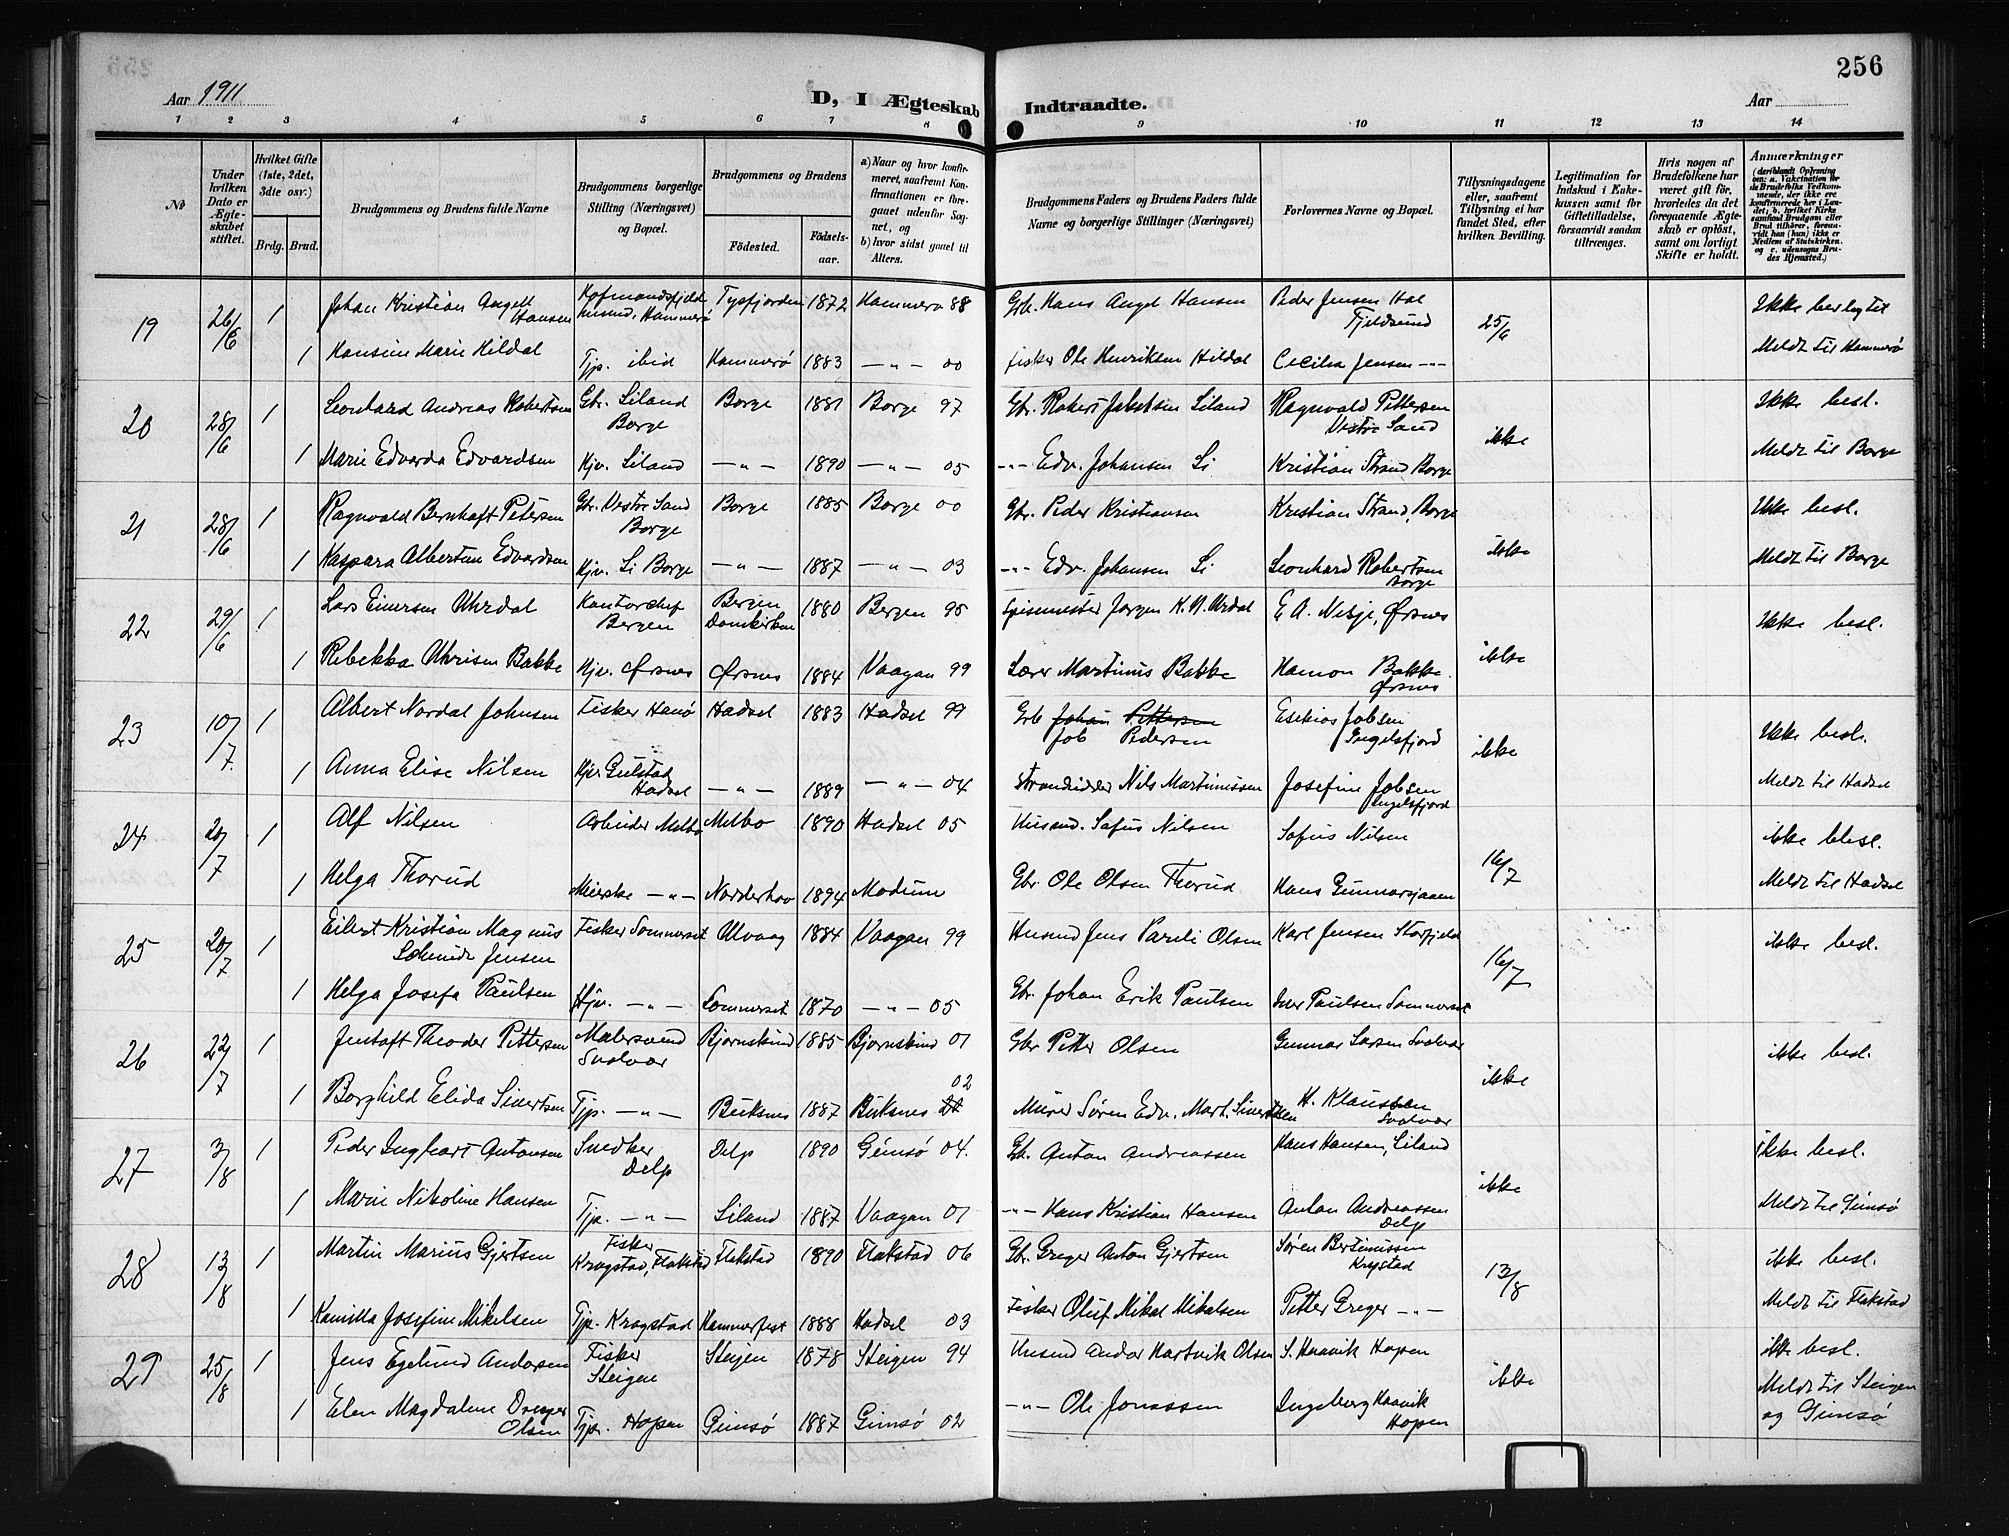 256
Aar 1911
D, I Ægteskab Indtraadte.
Aar
1 2 3 4 5 6 7 8 9 10 11 12 13 14
No
Under hvilken Dato er Ægteskabet stiftet.
Hvilket Gifte (1ste, 2det, 3die osv.)
Brdg. Brud.
Brudgommens og Brudens fulde Navne
Brudgommens borgerlige Stilling (Næringsvei) og Bopæl.
Brudgommens og Brudens
Födested.
Födselsaar.
a) Naar og hvor konfirmeret, saafremt Konfirmationen er foregaaet udenfor Sognet, og
b) hvor sidst gaaet til Alters.
Brudgommens Faders og Brudens Faders fulde Navne og borgerlige Stillinger (Næringsvei)
Forlovernes Navne og Bopæl.
Tillysningsdagene eller, saafremt Tillysning ei har fundet Sted, efter hvilken Bevilling.
Legitimation for Indskud i Enkekassen samt for Giftetilladelse, forsaavidt saadan tiltrænges.
Hvis nogen af Brudefolkene har været gift för, hvorledes da det foregaaende Ægteskab er oplöst, samt om lovligt Skifte er holdt.
Anmærkninger (deriblandt Oplysning om: a. Vakcination for de Brudefolks Vedkommende, der ikke ere konfirmerede her i Landet; b. hvilket Kirkesamfund Brudgom eller Brud tilhörer, forsaavidt han (hun) ikke er Medlem af Statskirken. og c. udensogns Brudes Hjemsted.)
19 26/6 1 Johan Kristian Angell Hansen Tysfjorden 1872 Hammerø 88 Gbr. Hans Angel Hansen Peder Jensen Hol Fjeldsund 25/6 Ikke beslegtet
1 Hansine Marie Hildal Tjp. ibid Hammerø 1883 — " — 00 Fisker Ole Henriksen Hildal Cecilia Jensen -"- Meldt til Hammerø
20 28/6 1 Leonhard Andreas Robertsen Gbr. Liland Borge Borge 1881 Borge 97 Gbr. Robert Jakobsen Liland Ragnvald Pettersen Vestre Sand ikke Ikke besl.
1 Marie Edvarda Edvardsen Hjv. Liland — " — 1890 — " — 05 -"- Edv. Johansen Li Kristian Strand Borge Meldt til Borge
21 28/6 1 Ragnvald Bernhoft Petersen Gbr. Vestre Sand Borge Borge 1885 Borge 00 Gbr. Peder Kristiansen Kristian Strand, Borge ikke Ikke besl.
1 Kaspara Albertine Edvardsen Hjv. Li Borge — " — 1887 — " — 03 -"- Edv. Johansen Li Leonhard Robertsen Borge Meldt til Borge
22 29/6 1 Lars Einersen Uhrdal Kontorchef Bergen Bergen Domkirken 1880 Bergen 95 Spisemester Jørgen K. N. Urdal E. A. Nesje, Ørsnes ikke Ikke besl.
1 Rebekka Bakke Hjv. Ørsnes Ørsnes 1884 Vaagan 99 Lærer Martinus Bakke Hamon Bakke Ørsnes
23 10/7 1 Albert Nordal Johnsen Fisker Hanø Hadsel 1883 Hadsel 99 Grb Johan Pettersen Job Pedersen Esekias Jobsen Ingelsfjord ikke Ikke besl.
1 Anna Elise Nilsen Hjv. Gulstad Hadsel — " — 1889 — " — 04 Strandsidder Nils Martinussen Josefine Jobsen Ingelsfjord Meldt til Hadsel
24 20/7 1 Alf Nilsen Arbeider Melbo Melbo 1890 Hadsel 05 Husmd. Sofus Nilsen Sofus Nilsen 16/7 ikke besl.
1 Helga Thorud Meierske — " — Norderhov 1894 Modum Gbr. Ole Olsen Thorud Hans Meldt til Hadsel
25 20/7 1 Eilert Kristian Magnus Schmidt Jensen Fisker Sommerset Ulvaag 1884 Vaagan 99 Husmd Jens Pareli Olsen Karl Jensen Storfjeld 16/7 ikke besl.
1 Helga Josefa Paulsen Hjv. — " — Sommerset 1870 — " — 05 Gbr. Johan Erik Paulsen Iver Paulsen Sommerset
26 22/7 1 Jentoft Theodor Pettersen Malersvend Svolvær Bjørnskind 1885 Bjørnskind 01 Gbr Petter Olsen Gunnar Larsen Svolvær ikke ikke besl.
1 Borghild Elida Sivertsen Tjp. — " — Buksnes 1887 Buksnes 02 Murer Søren Edv. Mart. Sivertsen H. Klaussen Svolvær
27 3/8 1 Peder Ingheart Antonsen Snedker Delp Delp 1890 Gimsø 04. Gbr. Anton Andreassen Hans Hansen, Liland ikke ikke besl.
1 Marie Nikoline Hansen Tjp. — " — Liland 1887 Vaagan 01 -"- Hans Kristian Hansen Anton Andreassen Delp Meldt til Gimsø
28 13/8 1 Martin Marius Gjertsen Fisker Krogstad, Flakstad Flakstad 1890 Flakstad 06 Gbr. Greger Anton Gjertsen Søren Bertinussen Krystad 13/8 ikke besl.
1 Kamilla Josefine Mikelsen Tjp. Krogstad Hammerfest 1888 Hadsel 03 Fisker Oluf Mikal Mikalsen Petter Greger -"- Meldt til Flakstad
29 25/8 1 Jens Egelund Andorsen Fisker Steigen Steigen 1878 Steigen 94 Husmd Andor Hartvik Olsen S. Haavik Hopen ikke ikke besl.
1 Elen Magdalene Dreyer Olsen Tjp. Hopen Gimsø 1887 Gimsø 02 -"- Ole Jonassen Ingeborg Haavik Hopen Meldt til Steigen og Gimsø